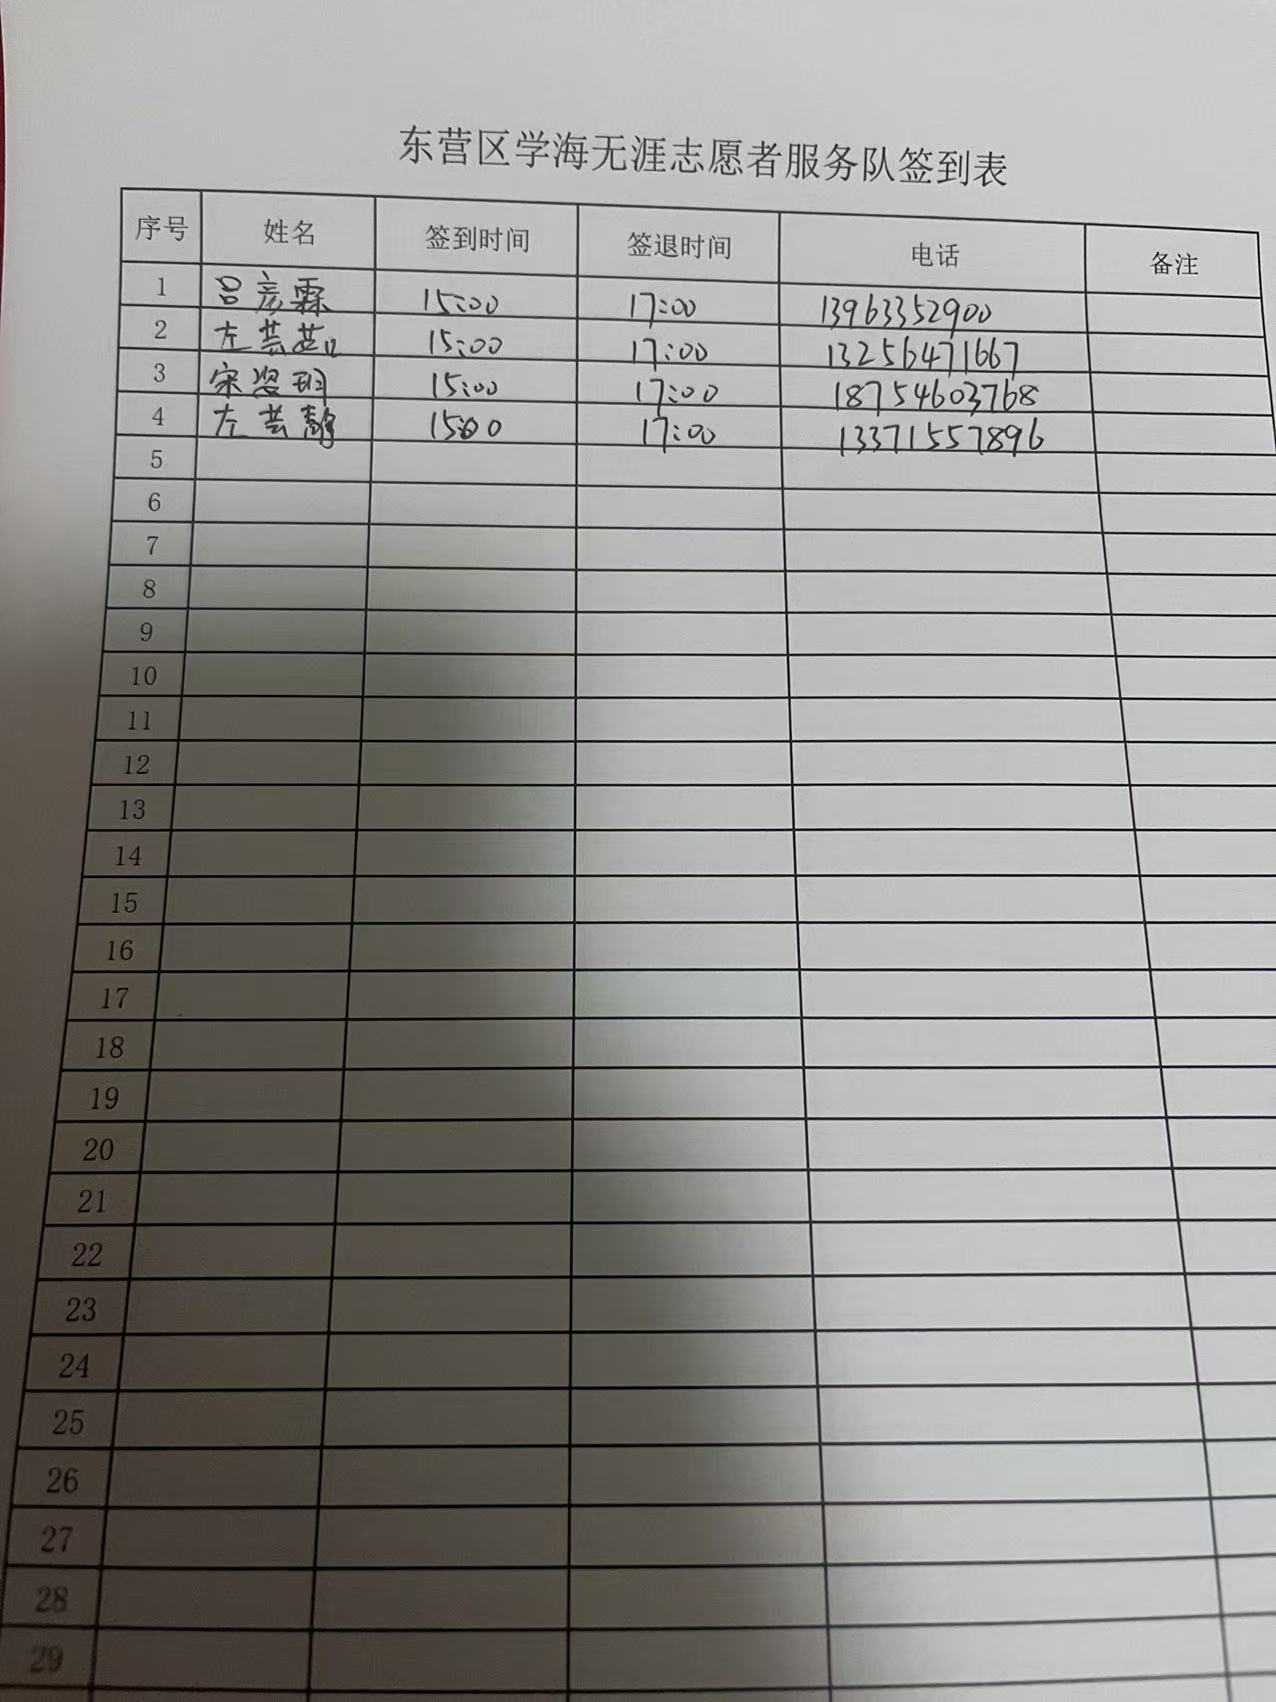 东营区学海无涯志愿者服务队签到表
序号 姓名 签到时间 签退时间 电话 备注
1 吕彦霖 15:00 17:00 13963352900
2 左芸 15:00 17:00 13256471667
3 宋姿玥 15:00 17:00 18754603768
4 左芸静 15:00 17:00 13371557896
5
6
7
8
9
10
11
12
13
14
15
16
17
18
19
20
21
22
23
24
25
26
27
28
29